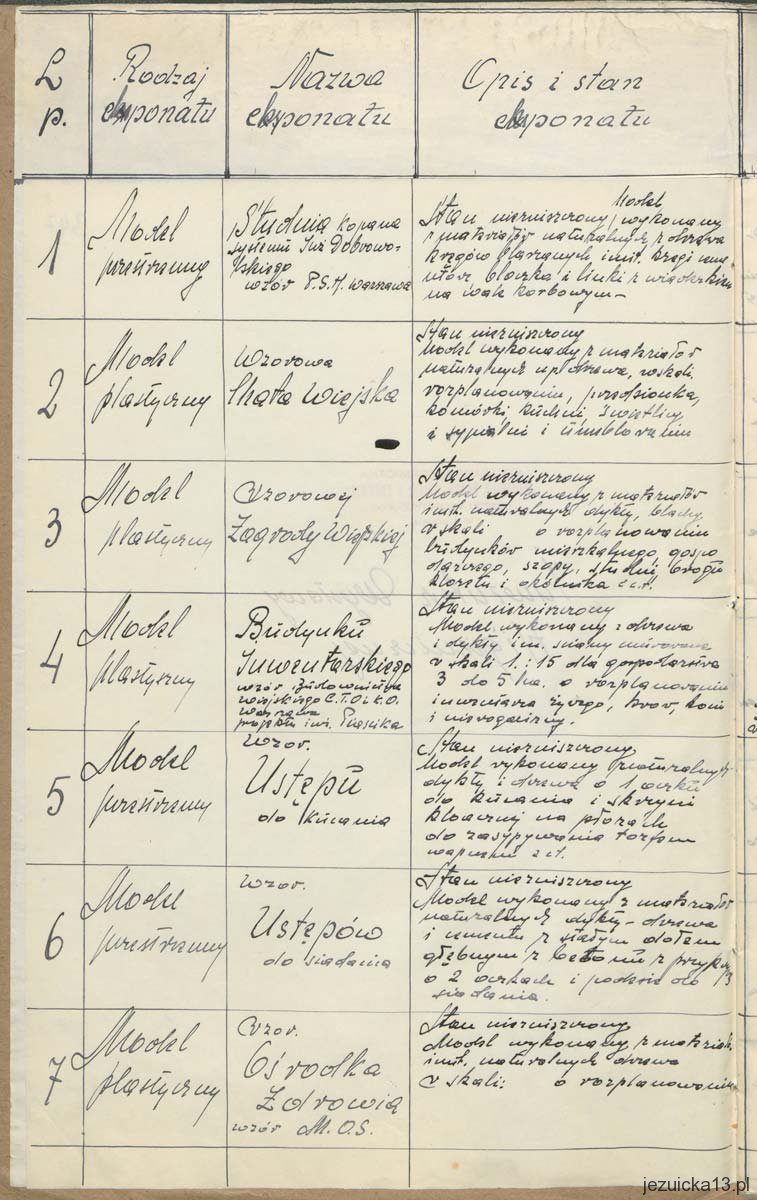 L p.
Rodzaj eksponatu
Nazwa eksponatu
Opis i stan eksponatu
1
Model
przestrzenny
Studnia kopana
systemu Inż Dobrowo-
lskiego
wzór P.S.H. Warszawa
Model
Stan niezniszczony wykonany
z materiałów naturalnych z drzewa
kręgów blaszanych imit. kręgi
bloczka i linki z wiaderkiem
na wale korbowym –
2
Model
plastyczny
Wzorowa
Chata Wiejska
Stan niezniszczony
Model wykonany z materiałów
naturalnych np drzewa, w skali
rozplanowaniu, przedsionka,
komórki, kuchni, świetlicy
i sypialni i umeblowaniu
3
Model
plastyczny
Wzorowej
Zagrody Wiejskiej
Stan niezniszczony
Model wykonany z materiałów
imit. naturalnych dykty, blachy,
w skali o rozplanowaniu
budynków mieszkalnego, gospo
darczego, szopy, studni, brogu
klozetu i okólnika i t.
4
Model
plastyczny
Budynku
Inwentarskiego
wzór Budownictwa
Wiejskiego C.T.O i K.O.
Warszawa
projektu inż. Piaścika
Stan niezniszczony
Model wykonany z drzewa
i dykty im. ściany murowane
w skali 1:15 dla gospodarstwa
3 do 5 ha. o rozplanowaniu
inwentarza żywego, krów, koni
i nierogacizny.
5
Model
przestrzenny
Wzor.
Ustępu
do kucania
Stan niezniszczony
Model wykonany z naturalnych
dykty i drzewa o 1 oczku
do kucania i skrzyni
kloacznej na płozach
do zasypywania torfem
wapnem i t.
6
Model
przestrzenny
Wzor.
Ustępów
do siadania
Stan niezniszczony
Model wykonany z materiałów
naturalnych dykty – drzewa
i cementu z stałym dołem
z betonu z
o 2 oczkach i do
siadania.
7
Model
plastyczny
Wzor.
Ośrodka
Zdrowia
wzór M.O.S.
Stan niezniszczony
Model wykonany z materiał.
imit. naturalnych drzewa
w skali: o rozplanowaniu
jezuicka13.pl